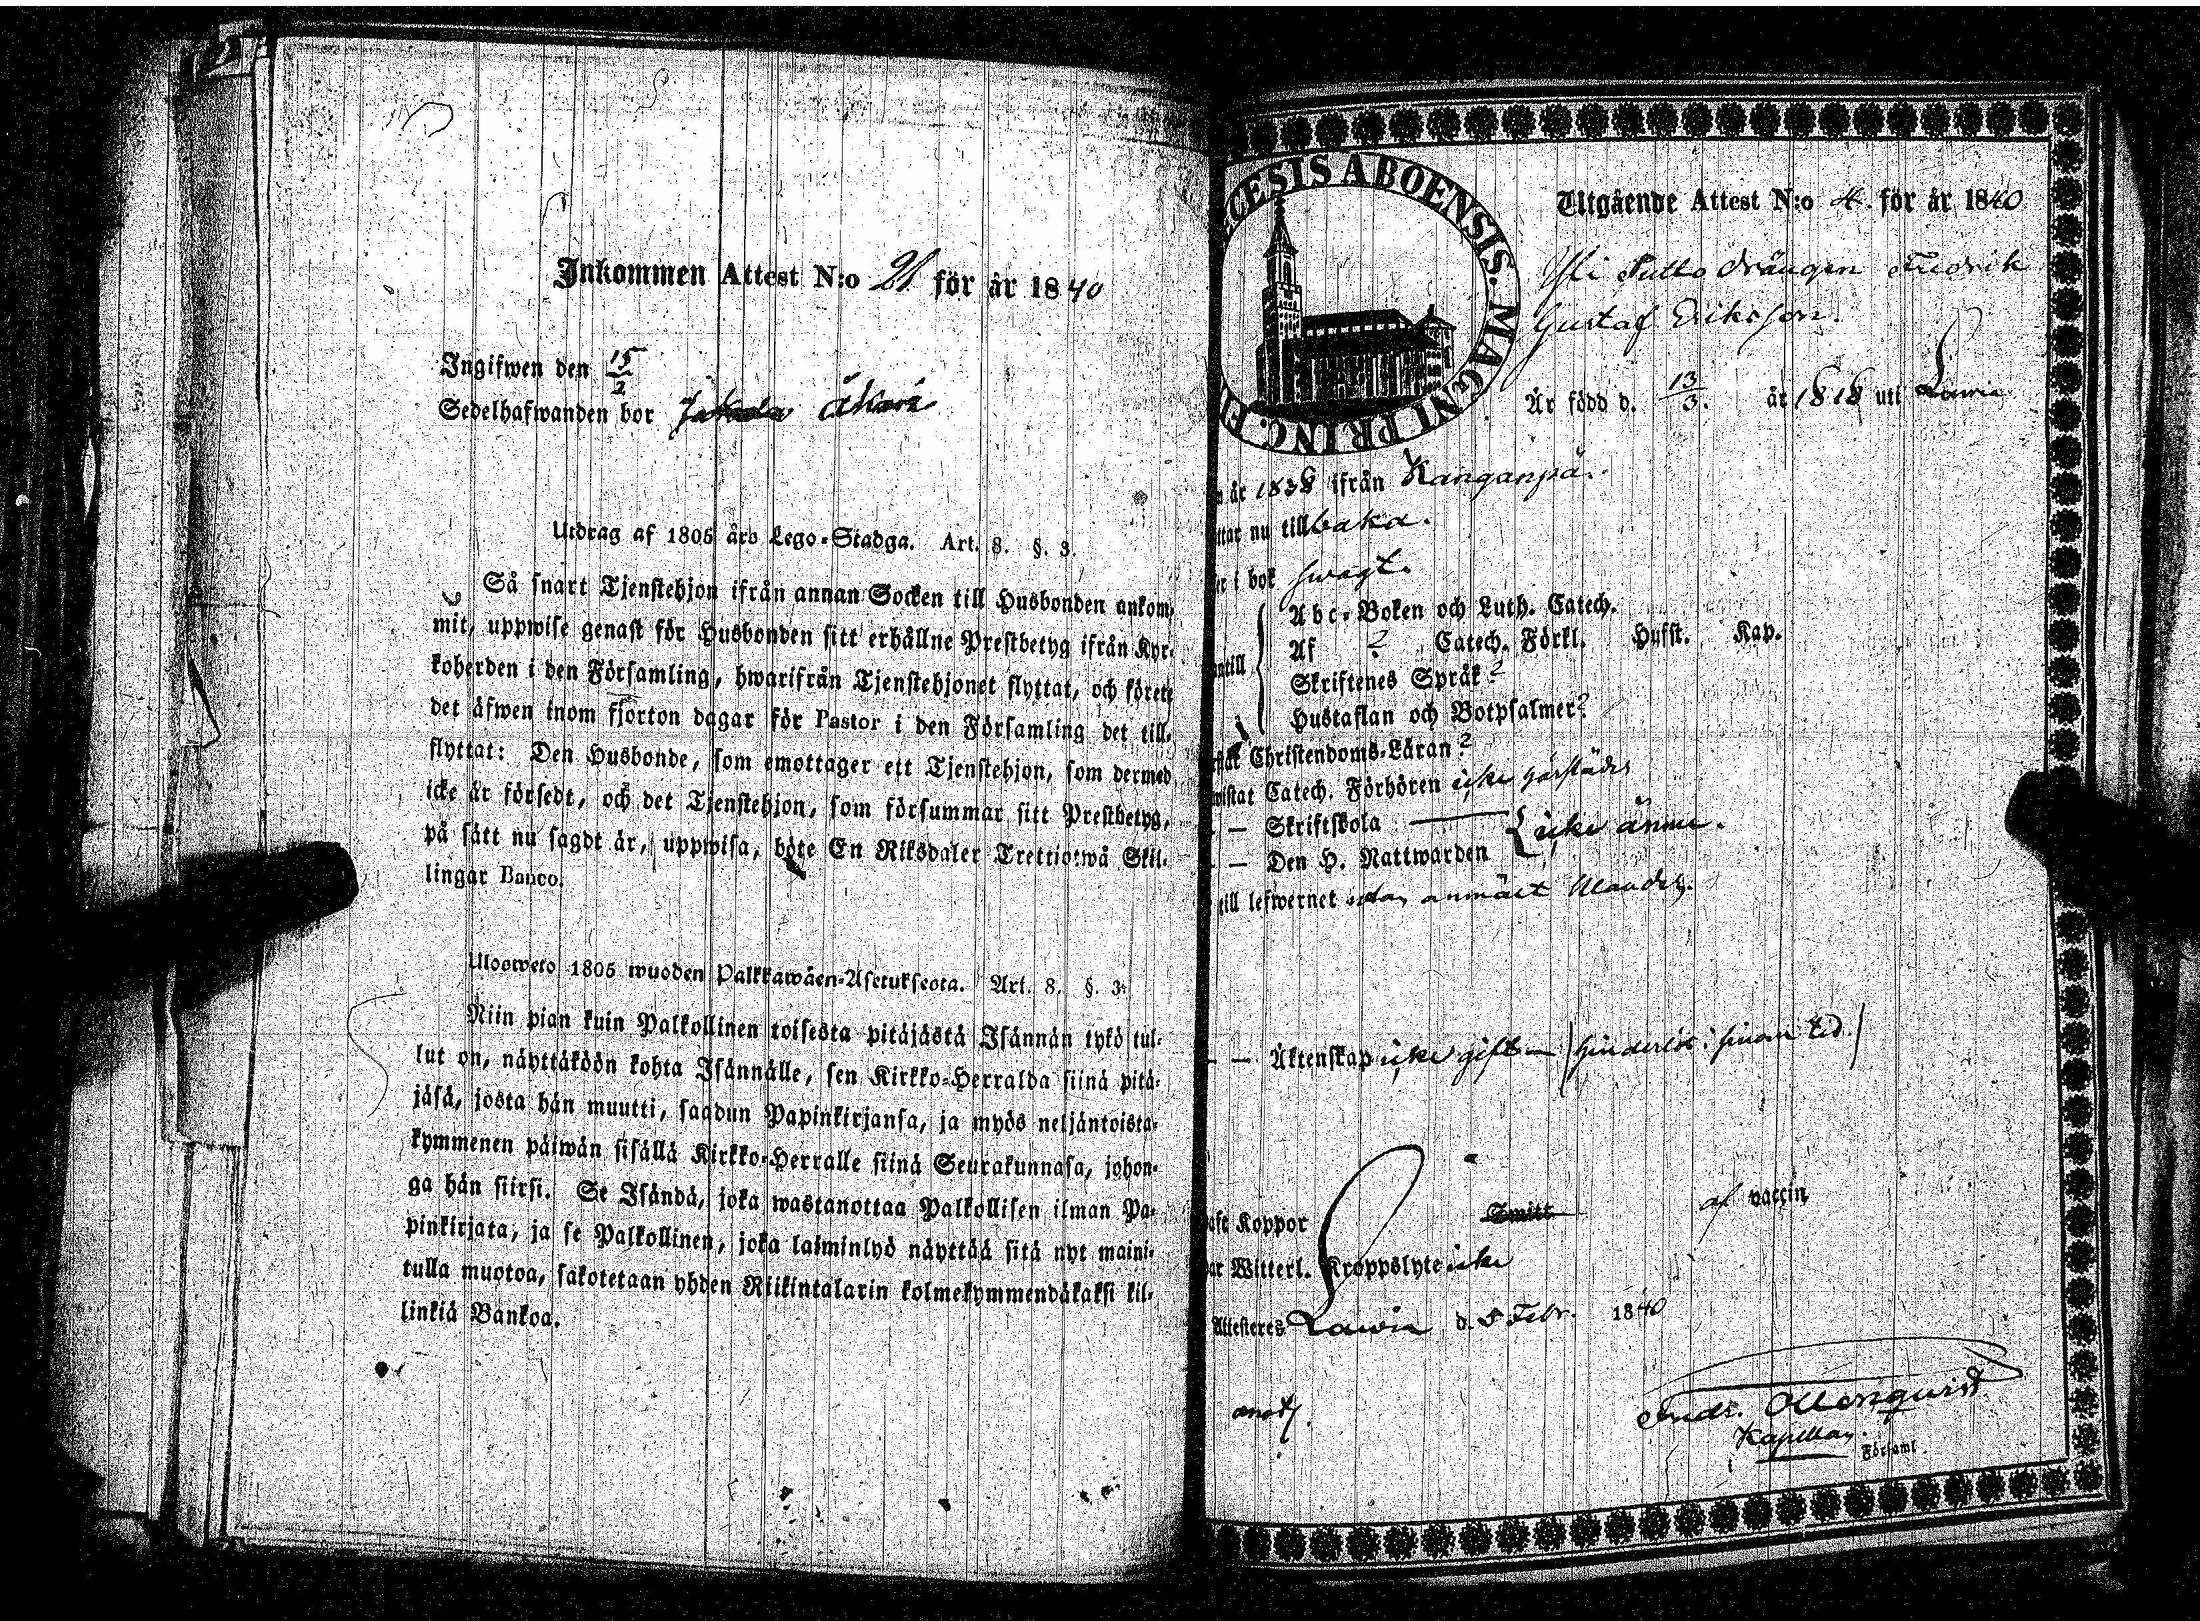 Inkommen Attest N:o 21 för år 1840
Ingifwen den 15/2
Sedelhafwanden bor
Utdrag af 1805 års Lego-Stadga. Art. 8. §. 3.
Så snart Tjenstehjon ifrån annan Socken till Husbonden ankom-
mit, uppwise genast för Husbonden sitt erhållne Prestbetyg ifrån Kyr-
koherden i den Församling, hwarifrån Tjenstehjonet flyttat, och förete
det äfwen inom fjorton dagar för Pastor i den Församling det till-
flyttat: Den Husbonde, som emottager ett Tjenstehjon, som dermed
icke är försedt, och det Tjenstehjon, som försummar sitt Prestbetyg,
på sätt nu sagdt är, uppwisa, böte En Riksdaler Trettiotwå Skil-
lingar Banco.
Ulosweto 1805 wuoden Palkkawäen-Asetuksesta. Art. 8. §. 3.
Niin pian kuin Palkollinen toisesta pitäjästä Isännän tykö tul-
lut on, näyttäköön kohta Isännälle, sen Kirkko-Herralda siinä pitä-
jäsä, josta hän muutti, saadun Papinkirjansa, ja myös neljäntoista-
kymmenen päiwän sisällä Kirkko-Herralle siinä Seurakunnasa, johon-
ga hän siirsi. Se Isändä, joka wastanottaa Palkollisen ilman Pa-
pinkirjata, ja se Palkollinen, joka laiminlyö näyttää sitä nyt maini-
tulla muotoa, sakotetaan yhden Riikintalarin kolmekymmendäkaksi kil-
linkiä Bankoa.
CESIS ABOENSIS. MAGNI PRINC. FI
Utgående Attest N:o 4. för år 1840
drängen Fredrik
Gustaf Eriksson.
Är född d. 13/3. år 1818 uti Lawia
år 1838 ifrån Kanganpä.
ttar nu tillbaka.
i bok swagt.
Abc-Boken och Luth. Catech.
Af ? Catech. Förkl. Husst. Kap.
antill
Skriftenes Språk ?
Hustaflan och Botpsalmer ?
Christendoms-Läran ?
wistat Catech. Förhören icke härstädes
— Skriftskola
icke ännu.
— Den H. Nattwarden
till lefwernet utan anmält
— — Äktenskap icke gift — (hinderlös i sinom tid.)
haft Koppor Smitt af vaccin
har Witterl. Kroppslyte icke
Attesteres Lawia d. 5 Febr. 1840
Kapellan.
Församl.